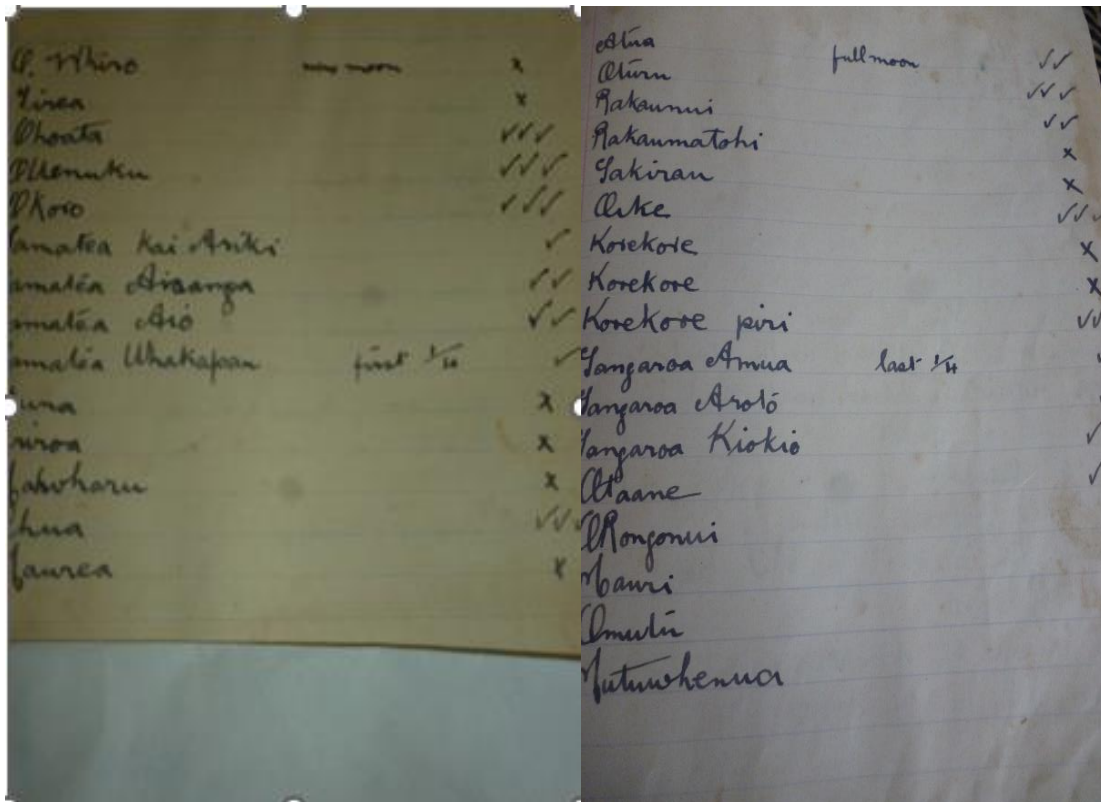 O. Whiro new moon x
Tirea x
Ohoata ✓✓✓
OUenuku ✓✓✓
OKoro ✓✓✓
amatea Kai Ariki ✓
amatéa Aroanga ✓✓
amatéa Aió ✓✓
amatéa Whakapau first 1/4 ✓
una x
iroa x
awharu x
hua ✓✓✓
aurea x
Atua full moon ✓✓
Oturu ✓✓✓
Rakaunui ✓✓
Rakaumatohi x
Takirau x
Oike ✓✓✓
Korekore x
Korekore x
Korekore piri ✓✓
Tangaroa Amua last 1/4
Tangaroa Aroto
Tangaroa Kiokio ✓
Otaane ✓
ORongonui
Mauri
Omutu
Mutuwhenua